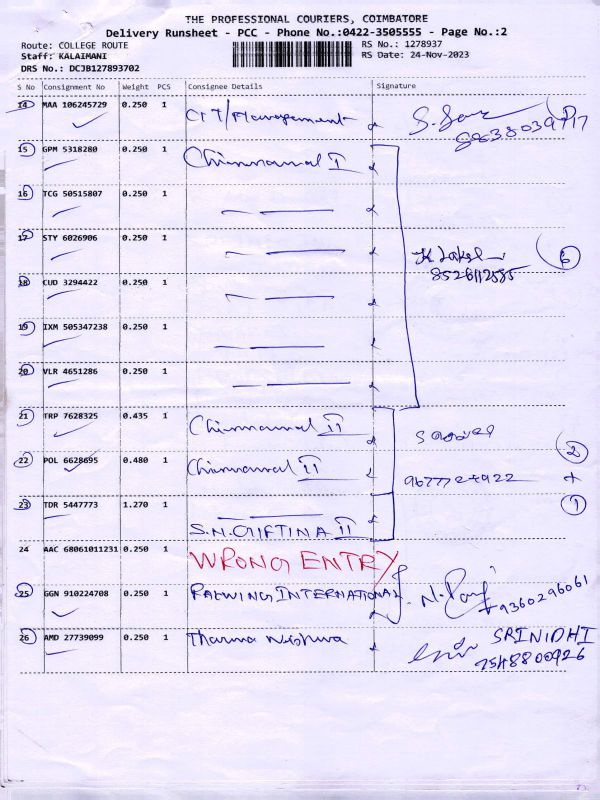 THE PROFESSIONAL COURIERS, COIMBATORE
Delivery Runsheet - PCC - Phone No.:0422-3505555 - Page No.:2
Route: COLLEGE ROUTE RS No.: 1278937
Staff: KALAIMANI RS Date: 24-Nov-2023
DRS No.: DCJB127893702
S No Consignment No Weight PCS Consignee Details Signature
14 MAA 106245729 0.250 1 CIT/Management
15 GPM 5318280 0.250 1 Chinnamal I
16 TCG 50515807 0.250 1
17 STY 6026906 0.250 1
6
18 CUD 3294422 0.250 1
19 IXM 505347238 0.250 1
20 VLR 4651286 0.250 1
21 TRP 7628325 0.435 1 Chinnamal II
2
22 POL 6628695 0.480 1 Chinnamal II 9677724922 +
23 TDR 5447773 1.270 1
1
S.N. CRIFTINA II
24 AAC 68061011231 0.250 1 WRONG ENTRY
25 GGN 910224708 0.250 1 RALWING INTERNATIONAL
9360296061
26 AMD 27739099 0.250 1 Tharma Nishwa SRINIDHI
7548800926